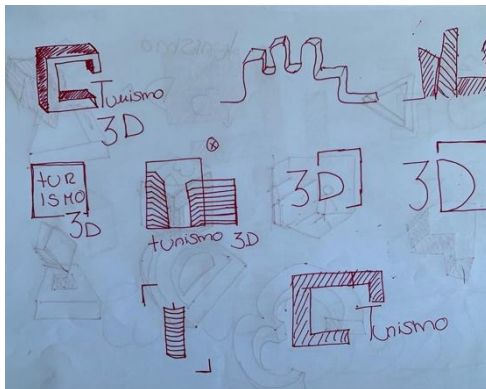 Turismo
3D
tUR
ISMO
3D
turismo 3D
3D
3D
Turismo